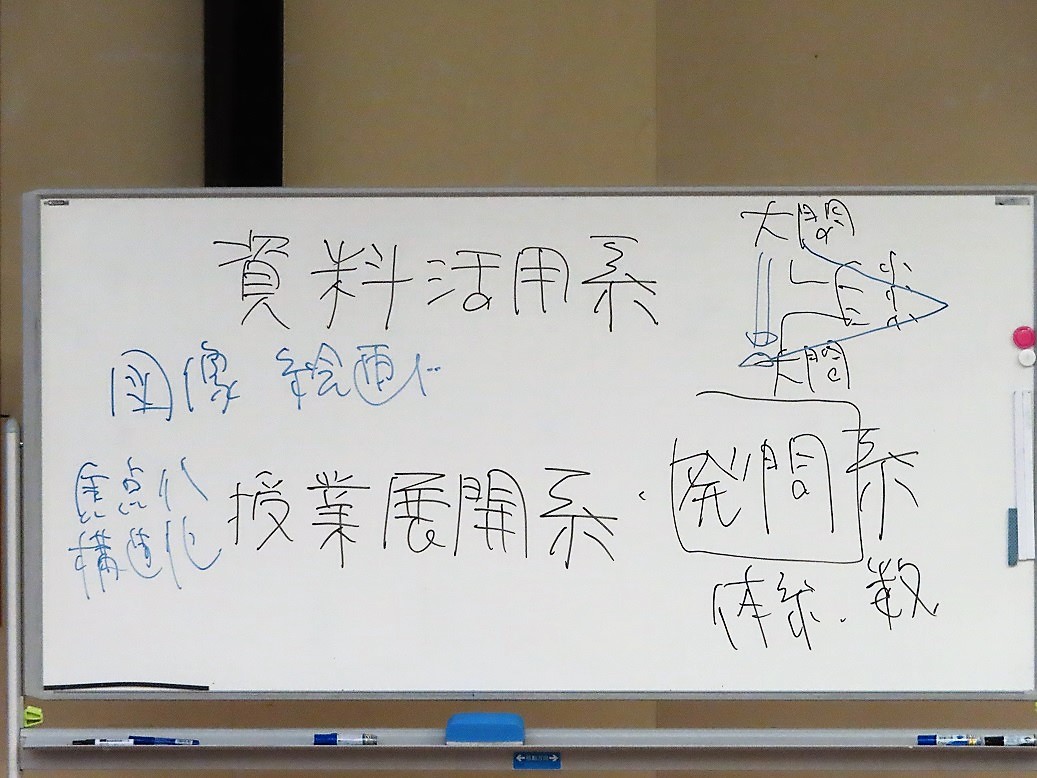 資料活用系
大問
小
小
小
大問
図像 絵画
焦点化
構造化
授業展開系・発問系
体系・数